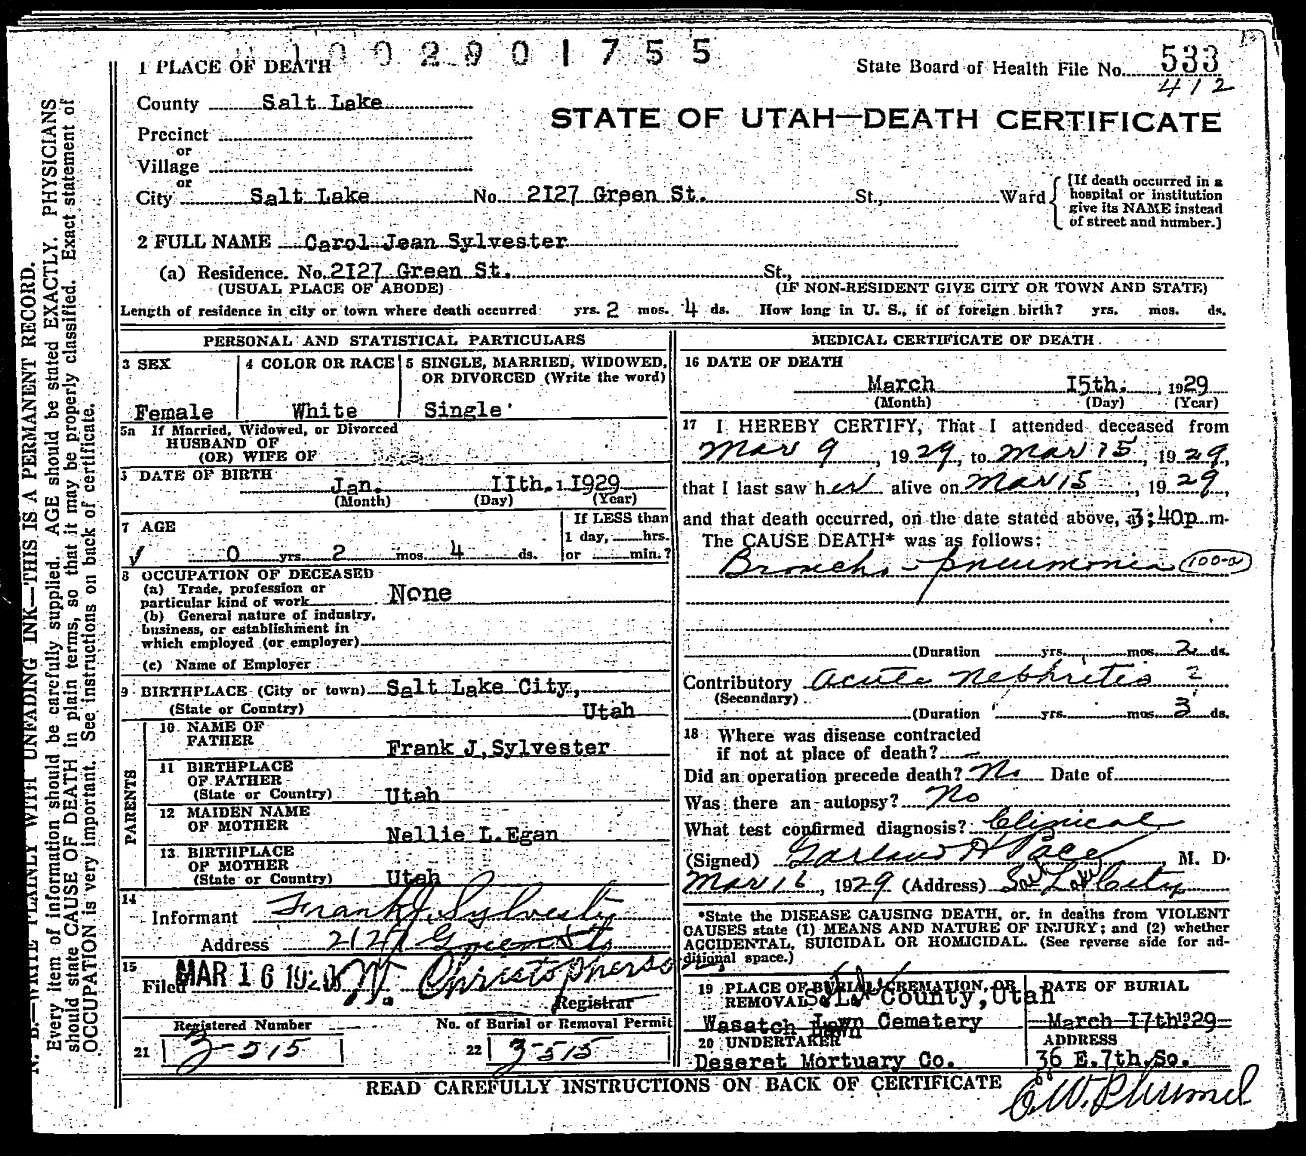 1002901755
1 PLACE OF DEATH
State Board of Health File No. 533
412
County Salt Lake
STATE OF UTAH—DEATH CERTIFICATE
Precinct
or
Village
or
City Salt Lake No. 2127 Green St. St., Ward
[If death occurred in a hospital or institution give its NAME instead of street and number.]
2 FULL NAME Carol Jean Sylvester
(a) Residence. No. 2127 Green St. St.,
(USUAL PLACE OF ABODE) (IF NON-RESIDENT GIVE CITY OR TOWN AND STATE)
Length of residence in city or town where death occurred yrs. 2 mos. 4 ds. How long in U. S., if of foreign birth? yrs. mos. ds.
PERSONAL AND STATISTICAL PARTICULARS
3 SEX
Female
4 COLOR OR RACE
White
5 SINGLE, MARRIED, WIDOWED,
OR DIVORCED (Write the word)
Single
5a If Married, Widowed, or Divorced
HUSBAND OF
(OR) WIFE OF
6 DATE OF BIRTH
Jan. 11th. 1929
(Month) (Day) (Year)
7 AGE
If LESS than
1 day, hrs.
0 yrs. 2 mos. 4 ds. or min.?
8 OCCUPATION OF DECEASED
(a) Trade, profession or
particular kind of work None
(b) General nature of industry,
business, or establishment in
which employed (or employer)
(c) Name of Employer
9 BIRTHPLACE (City or town) Salt Lake City,
(State or Country) Utah
PARENTS
10 NAME OF
FATHER Frank J. Sylvester
11 BIRTHPLACE
OF FATHER
(State or Country) Utah
12 MAIDEN NAME
OF MOTHER Nellie L. Egan
13 BIRTHPLACE
OF MOTHER
(State or Country) Utah
14
Informant Frank J. Sylvester
Address 2127 Green St
15
Filed MAR 16 1929 W. Christopherso
Registrar
Registered Number No. of Burial or Removal Permit
21 Z-515 22 Z-515
MEDICAL CERTIFICATE OF DEATH
16 DATE OF DEATH
March 15th. , 1929
(Month) (Day) (Year)
17 I HEREBY CERTIFY, That I attended deceased from
Mar 9, 1929, to Mar 15, 1929,
that I last saw her alive on Mar 15, 1929,
and that death occurred, on the date stated above, 3:40p m.
The CAUSE DEATH* was as follows:
Broncho-pneumonia 100-a
(Duration yrs. mos. 2 ds.
Contributory Acute Nephritis ?
(Secondary)
(Duration yrs. mos. 3 ds.
18 Where was disease contracted
if not at place of death?
Did an operation precede death? No Date of
Was there an autopsy? No
What test confirmed diagnosis? Clinical
(Signed) Garland H Pace, M. D.
Mar 16, 1929 (Address) Salt Lake City
*State the DISEASE CAUSING DEATH, or, in deaths from VIOLENT
CAUSES state (1) MEANS AND NATURE OF INJURY; and (2) whether
ACCIDENTAL, SUICIDAL OR HOMICIDAL. (See reverse side for ad-
ditional space.)
19 PLACE OF BURIAL, CREMATION, OR
REMOVAL S. L. County, Utah
Wasatch Lawn Cemetery
DATE OF BURIAL
March 17th 1929
20 UNDERTAKER
Deseret Mortuary Co.
ADDRESS
36 E. 7th. So.
READ CAREFULLY INSTRUCTIONS ON BACK OF CERTIFICATE
N. B.—WRITE PLAINLY WITH UNFADING INK—THIS IS A PERMANENT RECORD.
Every item of information should be carefully supplied. AGE should be stated EXACTLY. PHYSICIANS
should state CAUSE OF DEATH in plain terms, so that it may be properly classified. Exact statement of
OCCUPATION is very important. See instructions on back of certificate.